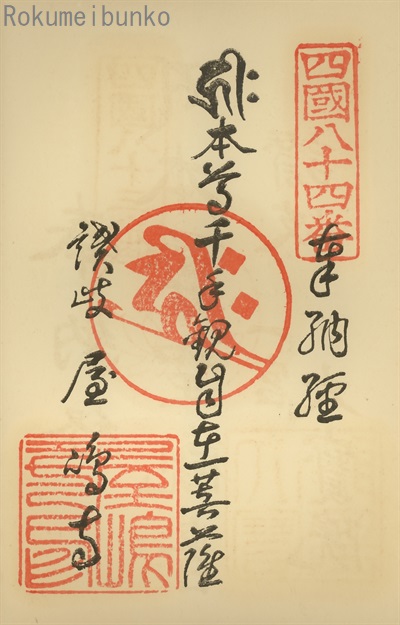 Rokumeibunko
四國八十四番
奉納経
本尊千手観自在菩薩
讃岐 屋嶋寺